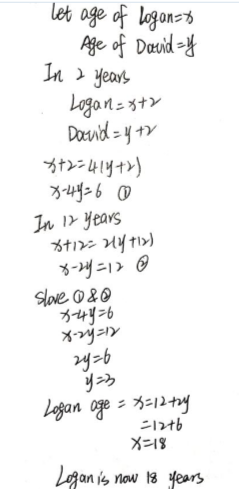 let age of Logan=x
Age of David=y
In 2 years
Logan=x+2
David=y+2
x+2=4(y+2)
x-4y=6 ①
In 12 years
x+12=2(y+12)
x-2y=12 ②
Slove ①&②
x-4y=6
x-2y=12
2y=6
y=3
Logan age = x=12+2y
=12+6
x=18
Logan is now 18 years